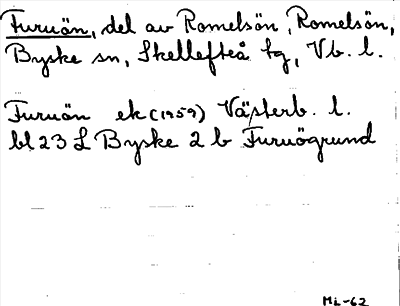 Furuön, del av Romelsön, Romelsön,
Byske sn, Skellefteå tg, Vb. l.
Furuön ek (1959) Västerb. l.
bl 23 L Byske 2 b Furuögrund
Mi-62